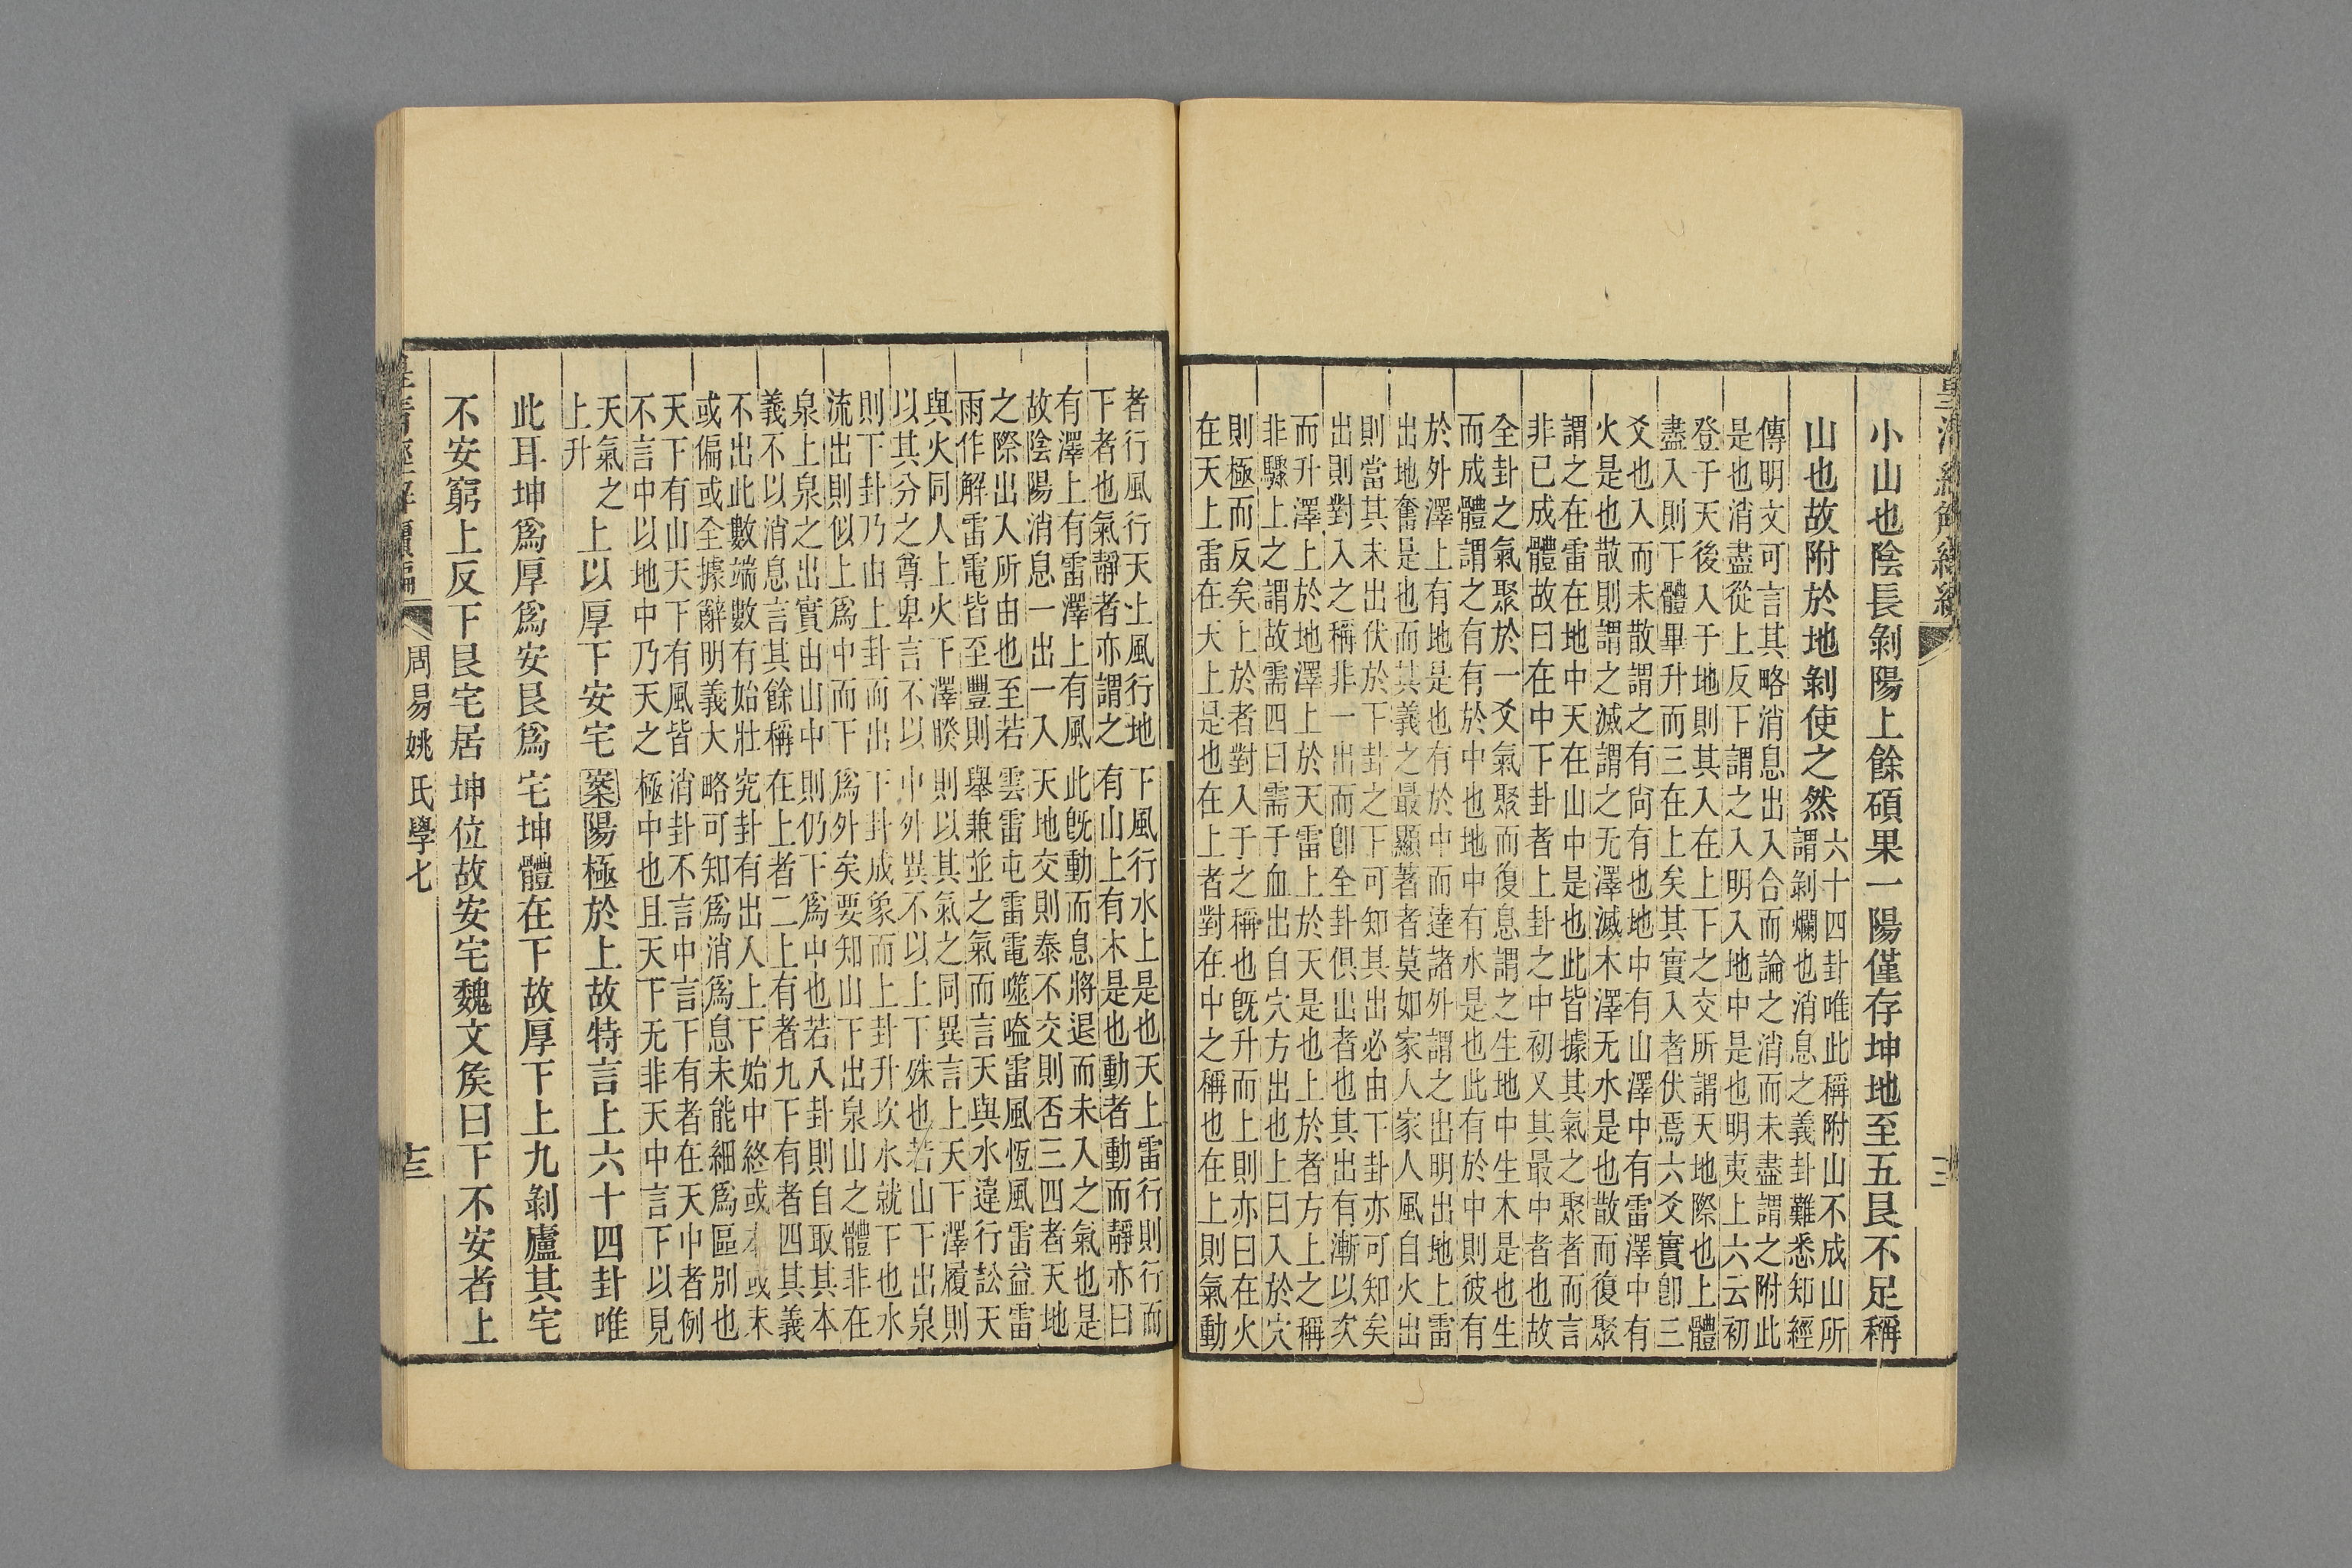 皇清經解續編
小山也陰長剝陽上餘碩果一陽僅存坤地至五艮不足稱
山也故附於地剝使之然
六十四卦唯此稱附山不成山所
謂剝爛也消息之義卦難悉知經
傳明文可言其略消息出入合而論之消而未盡謂之附此
是也消盡從上反下謂之入明入地中是也明夷上六云初
登于天後入于地則其入在上下之交所謂天地際也上體
盡入則下體畢升而三在上矣其實入者伏焉六爻實卽三
爻也入而未散謂之有尙有也地中有山澤中有雷澤中有
火是也散則謂之滅謂之无澤滅木澤无水是也散而復聚
謂之在雷在地中天在山中是也此皆據其氣之聚者而言
非已成體故曰在中下卦者上卦之中初又其最中者也故
全卦之氣聚於一爻氣聚而復息謂之生地中生木是也生
而成體謂之有有於中也地中有水是也此有於中則彼有
於外澤上有地是也有於中而達諸外謂之出明出地上雷
出地奮是也而其義之最顯著者莫如家人家人風自火出
則當其未出伏於下卦之下可知其出必由下卦亦可知矣
出則對入之稱非一出而卽全卦俱出者也其出有漸以次
而升澤上於地澤上於天雷上於天是也上於者方上之稱
非驟上之謂故需四曰需于血出自穴方出也上曰入於穴
則極而反矣上於者對入于之稱也旣升而上則亦曰在火
在天上雷在天上是也在上者對在中之稱也在上則氣動
者行風行天上風行地下風行水上是也天上雷行則行而
下者也氣靜者亦謂之有山上有木是也動者動而靜亦曰
有澤上有雷澤上有風此旣動而息將退而未入之氣也是
故陰陽消息一出一入天地交則泰不交則否三四者天地
之際出入所由也至若雲雷屯雷電噬嗑雷風恆風雷益雷
雨作解雷電皆至豐則舉兼並之氣而言天與水違行訟天
與火同人上火下澤睽則以其氣之同異言上天下澤履則
以其分之尊卑言不以中外異不以上下殊也若山下出泉
則下卦乃由上卦而出下卦成象而上卦升坎水就下也水
流出則似上爲中而下爲外矣要知山下出泉山之體非在
泉上泉之出實由山中則仍下爲中也若八卦則自取其本
義不以消息言其餘稱在上者二上有者九下有者四其義
不出此數端數有始壯究卦有出入上下始中終或本或末
或偏或全據辭明義大略可知爲消爲息未能細爲區別也
天下有山天下有風皆消卦不言中言下有者在天中者例
不言中以地中乃天之極中也且天下无非天中言下以見
天氣之
上升
上以厚下安宅案陽極於上故特言上六十四卦唯
此耳坤爲厚爲安艮爲宅坤體在下故厚下上九剝廬其宅
不安窮上反下艮宅居坤位故安宅魏文矦曰下不安者上
皇清經解續編 周易姚氏學七 十三